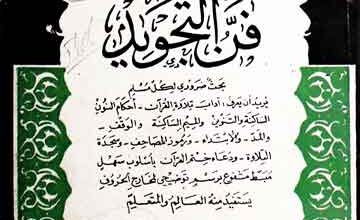 فن التجويد
بحث ضروري لكل مسلم
يريد أن يعرف: آداب تلاوة القرآن - أحكام النون
الساكنة والتنوين - والميم الساكنة - والوقف -
والمد - والابتداء - ورموز المصاحف - وسجدة
التلاوة - ودعاء ختم القرآن بأسلوب سهل
مبسط مشفوع برسم توضيحي لمخارج الحروف
يستفيد منه العالم والمتعلم